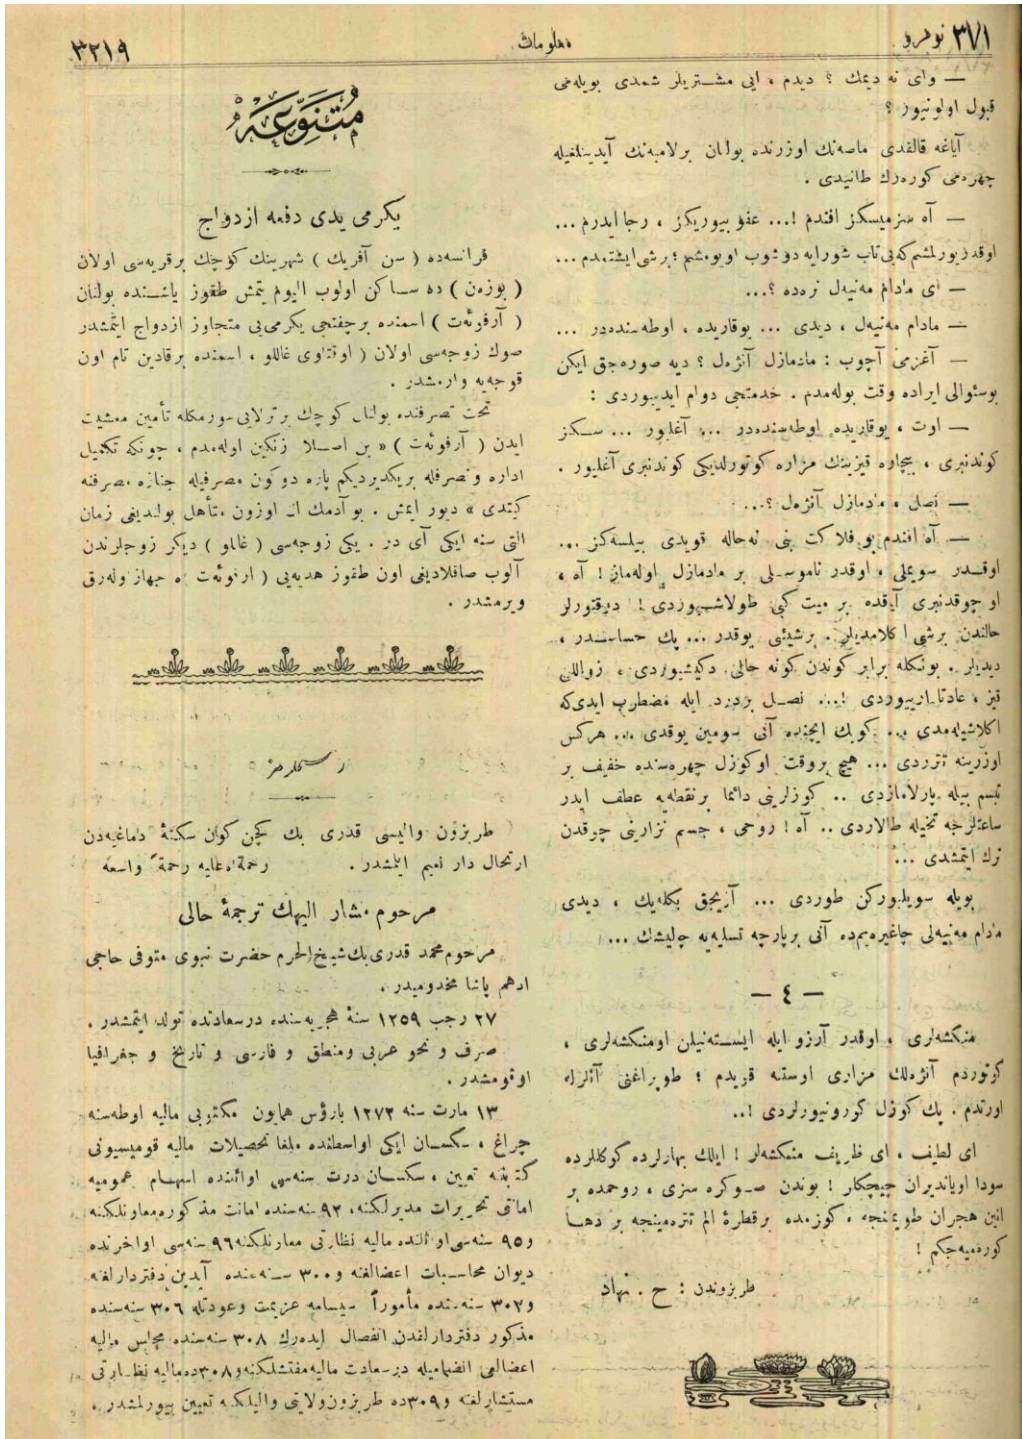 ٣٧١ نومرو
معلومات
٣٢١٩
— وای نه دیمك ؟ دیدم ، ایی مشتریلر شمدی بویله می
قبول اولونیور ؟
آیاغه قالقدی ماصه نك اوزرنده بولنان برلامبه نك آیدینلغیله
چهره می كوره رك طانیدی .
— آه سزمیسكز افندم !... عفو بیوریكز ، رجا ایدرم ...
اوقدر یورلمشم كه بی تاب شورایه دوشوب اویومشم ؛ برشی ایشتمدم ...
— ای مادام مه نیه ل نره ده ؟...
— مادام مه نیه ل ، دیدی ... یوقاریده ، اوطه سنده در ...
— آغزمی آچوب : مادمازل آنژه ل ؟ دیه صوره جق ایكن
بوسئوالی ایراده وقت بوله مدم . خدمتجی دوام ایدییوردی :
— اوت ، یوقاریده اوطه سنده در ... آغلیور ... سكز
كوندنبری ، بیچاره قیزینك مزاره كوتورلدیكی كوندنبری آغلیور .
— نصل ، مادمازل آنژه ل ؟...
— آه افندم بو فلاكت بنی نه حاله قویدی بیلسه كز ...
اوقدر سویملی ، اوقدر ناموسلی بر مادمازل اوله ماز ! آه ،
او چوقدنبری آیقده بر میت كبی طولاشییوردی ! دوقتورلر
حالندن برشی اكلامدیلر . برشیئی یوقدر ... پك حساسدر ،
دیدیلر . بونكله برابر كوندن كونه حالی دكیشیوردی ، زواللی
قیز ، عادتا ارییوردی !... نصل بردرد ایله مضطرب ایدی كه
اكلاشیله مدی ... كویك ایچنده آنی سومین یوقدی ... هركس
اوزرینه تتردی ... هیچ بروقت اوكوزل چهره سنده خفیف بر
تبسم بیله پارلامازدی .. كوزلرینی دائما برنقطه یه عطف ایدر
ساعتلرجه تخیله طالاردی .. آه ! روحی ، جسم نزارینی چوقدن
ترك ایتمشدی ...
بویله سویلیوركن طوردی ... آزیجق بكله یك ، دیدی
مادام مه نیه لی چاغیره یم ده آنی برپارچه تسلیه یه چالیشك ...
— ٤ —
منكشه لری ، اوقدر آرزو ایله ایسته نیلن اومنكشه لری ،
كوتوردم آنژه لك مزاری اوستنه قویدم ؛ طوپراغنی آنلرله
اورتدم . پك كوزل كورونیورلردی !..
ای لطیف ، ای ظریف منكشه لر ! ایلك بهارلرده كوكللرده
سودا اویاندیران چیچكلر ! بوندن صوكره سزی ، روحمده بر
انین هجران طویمنجه ، كوزمده برقطرهٔ الم تتره مینجه بر دها
كوره میه جكم !
طربزوندن : ح . نهاد
متنوعه
یكرمی یدی دفعه ازدواج
فرانسه ده ( سن آفریك ) شهرینك كوچك برقریه سی اولان
( بوزه ن ) ده ساكن اولوب الیوم یتمش طقوز یاشنده بولنان
( آرفوئه ت ) اسمنده برچفتجی یكرمی یی متجاوز ازدواج ایتمشدر
صوك زوجه سی اولان ( اوقتاوی غاللو ، اسمنده برقادین تام اون
قوجه یه وارمشدر .
تحت تصرفنده بولنان كوچك برترلایی سورمكله تأمین معیشت
ایدن ( آرفوئه ت ) « بن اصلا زنكین اوله مدم ، چونكه تكمیل
اداره و تصرفله بریكدیردیكم پاره دوكون مصرفیله جنازه مصرفنه
كیتدی » دیور ایمش . بو آدمك اك اوزون متأهل بولندیغی زمان
التی سنه ایكی آی در . یكی زوجه سی ( غاللو ) دیكر زوجلرندن
آلوب صاقلادیغی اون طقوز هدیه یی ( ارفوئه ت ) ه جهاز اوله رق
ویرمشدر .
رسملرمز
طربزون والیسی قدری بك كچن كون سكتهٔ دماغیه دن
ارتحال دار نعیم ایلمشدر . رحمة الله علیه رحمةً واسعه
مرحوم مشار الیهك ترجمهٔ حالی
مرحوم محمد قدری بك شیخ الحرم حضرت نبوی متوفی حاجی
ادهم پاشا مخدومیدر .
٢٧ رجب ١٢٥٩ سنهٔ هجریه سنده درسعادتده تولد ایتمشدر .
صرف و نحو عربی ومنطق و فارسی و تاریخ و جغرافیا
اوقومشدر .
١٣ مارت سنه ١٢٧٣ بارؤس همایون مكتوبی مالیه اوطه سنه
چراغ ، سكسان ایكی اواسطنده ملغا تحصیلات مالیه قومیسیونی
كتبنه تعیین ، سكسان درت سنه سی اوائنده اسهام عمومیه
امانتی تحریرات مدیرلكنه ، ٩٢ سنه سنده امانت مذكوره معاونلكنه
و ٩٥ سنه سی اوائلنده مالیه نظارتی معاونلكنه ٩٦ سنه سی اواخرنده
دیوان محاسبات اعضالغنه و ٣٠٠ سنه سنده آیدین دفتردارلغنه
و ٣٠٢ سنه سنده مأموراً سیسامه عزیمت وعودتله ٣٠٦ سنه سنده
مذكور دفتردارلقدن انفصال ایده رك ٣٠٨ سنه سنده مجلس مالیه
اعضالغی انضمامیله درسعادت مالیه مفتشلكنه و ٣٠٨ ده مالیه نظارتی
مستشارلغنه و ٣٠٩ ده طربزون ولایتی والیلكنه تعیین بیورلمشدر .